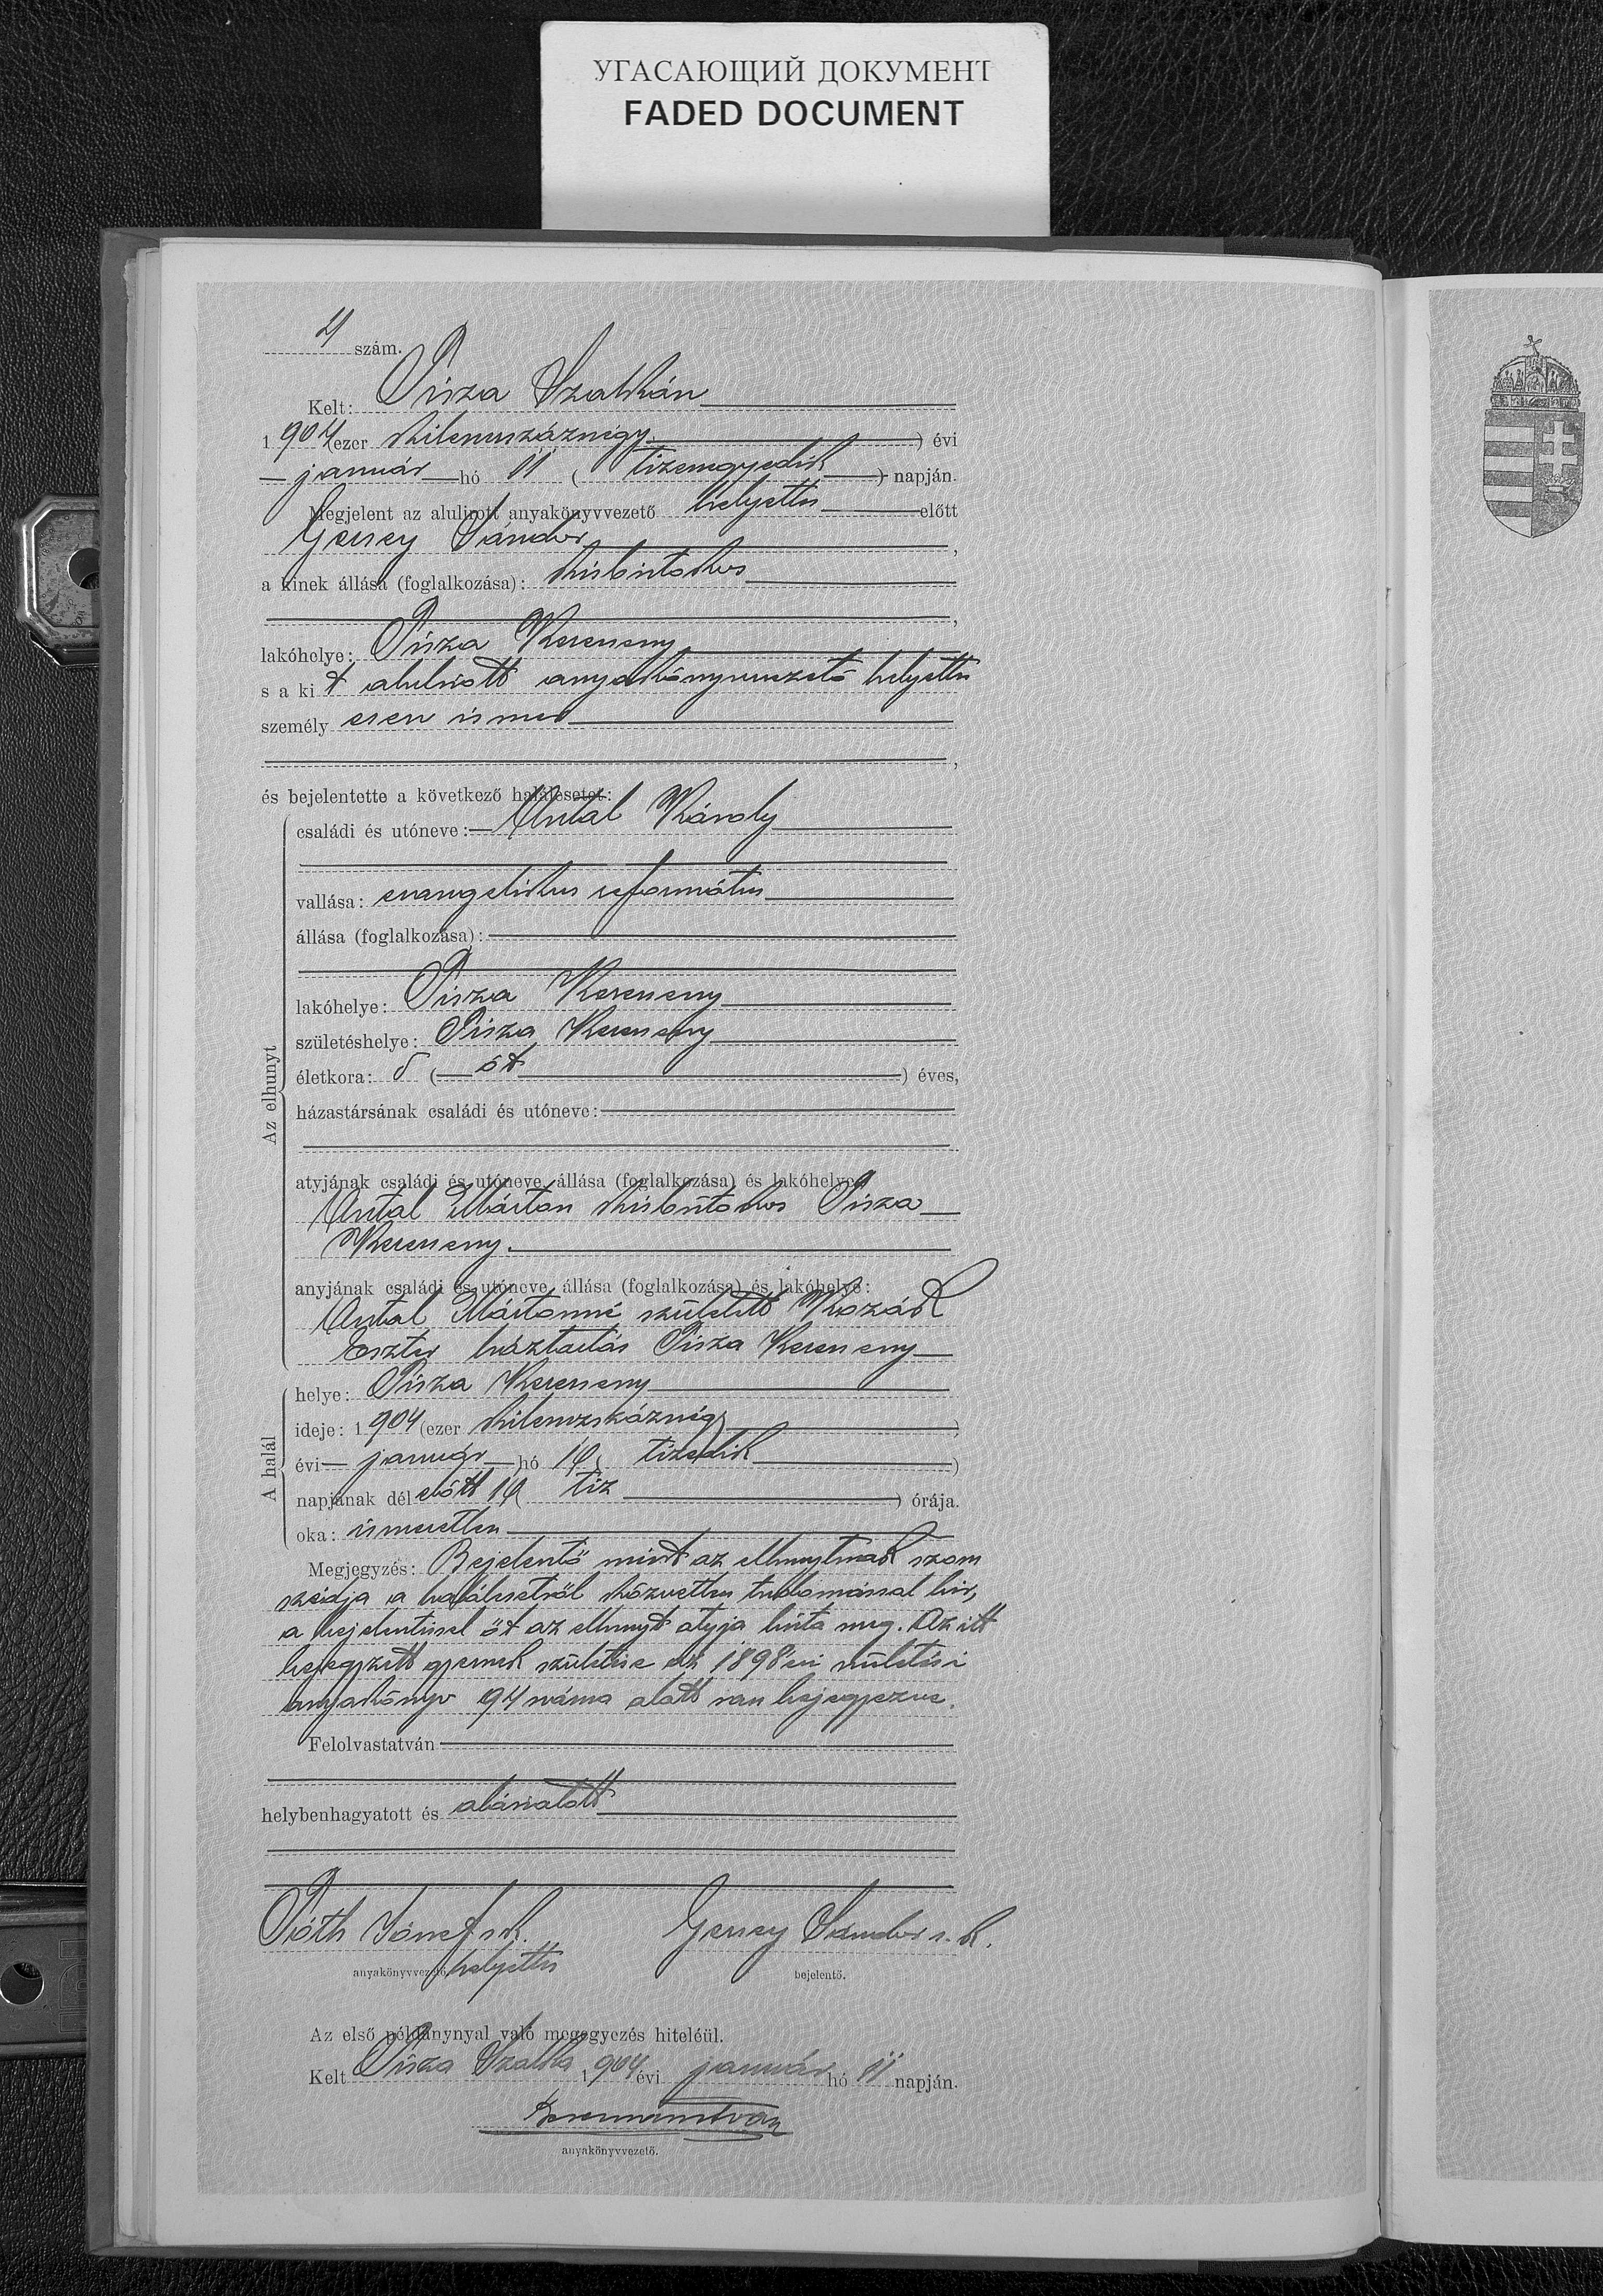 УГАСАЮЩИЙ ДОКУМЕНТ
FADED DOCUMENT
4 szám.
Kelt: Tisza Szalkán
1904 (ezer kilenczáznégy) évi
január hó 11 (tizenegyedik) napján.
Megjelent az alulirott anyakönyvvezető helyettes előtt
Sándor,
a kinek állása (foglalkozása): kisbirtokos
lakóhelye: Tisza Kerecseny
s a kit alulirott anyakönyvvezető helyettes
személyesen ismer
és bejelentette a következő halálesetet:
Az elhunyt
családi és utóneve: Antal Károly
vallása: evangelikus református
állása (foglalkozása):
lakóhelye: Tisza Kerecseny
születéshelye: Tisza Kerecseny
életkora: 5 (öt) éves,
házastársának családi és utóneve:
atyjának családi és utóneve, állása (foglalkozása) és lakóhelye:
Antal Márton kisbirtokos Tisza
Kerecseny.
anyjának családi és utóneve, állása (foglalkozása) és lakóhelye:
Antal Mártonné született Kozák
Eszter háztartás Tisza Kerecseny
A halál
helye: Tisza Kerecseny
ideje: 1904 (ezer kilenczszáznégy)
évi január hó 10 (tizedik)
napjának délelőtt 10 (tiz) órája.
oka: ismeretlen
Megjegyzés: Bejelentő mint az elhunytnak szom
szédja a halálesetről közvetlen tudomással bir,
a bejelentéssel őt az elhunyt atyja bizta meg. Az itt
bejegyzett gyermek születése az 1898 évi születési
anyakönyv 94 száma alatt van bejegyezve.
Felolvastatván
helybenhagyatott és aláiratott
Tóth József sk. Sándor s. k.
anyakönyvvezető helyettes bejelentő.
Az első példánynyal való megegyezés hiteléül.
Kelt Tisza Szalka 1904 évi január hó 11 napján.
anyakönyvvezető.